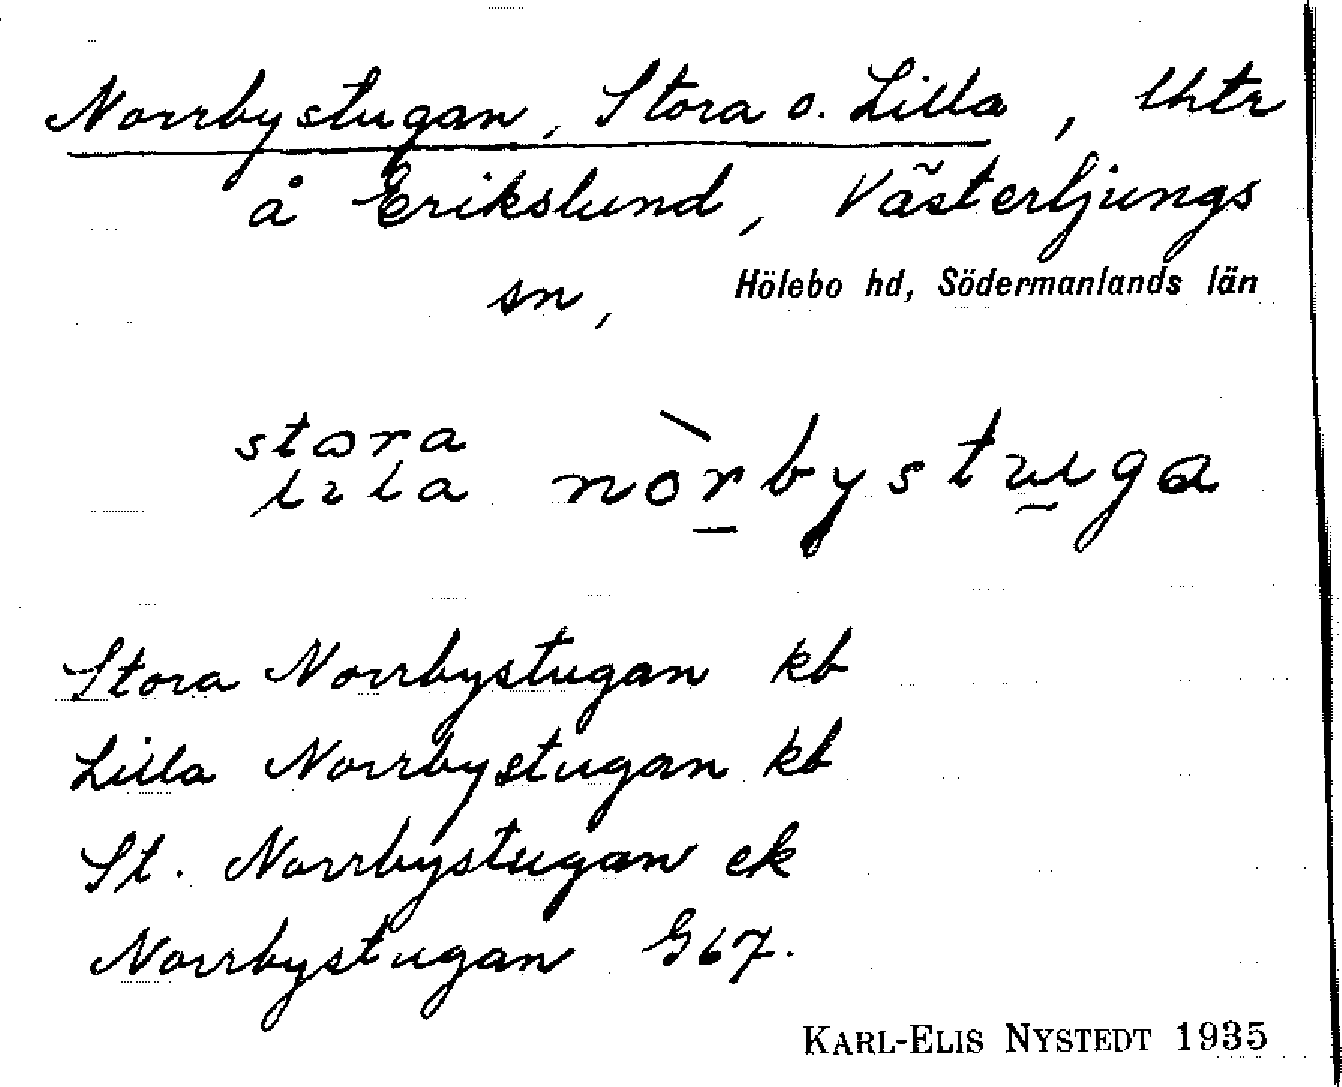 Norrbystugan, Stora o. Lilla, lhtr
å Erikslund, Västerljungs
sn, Hölebo hd, Södermanlands län
stora
lila nòrbystuga
Stora Norrbystugan kb
Lilla Norrbystugan kb
St. Norrbystugan ek
Norrbystugan G67.
KARL-ELIS NYSTEDT 1935